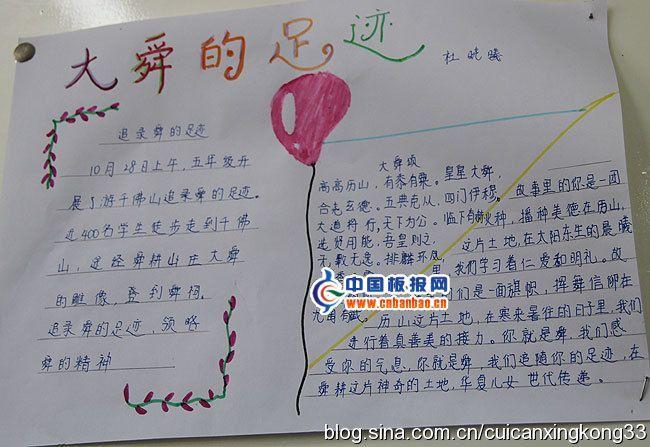 大舜的足迹
杜晓曦
追录舜的足迹
10月28日上午，五年级开
展了游千佛山追录舜的足迹。
近400名学生徒步走到千佛
山，途经舜耕山庄大舜
的雕像，登到舜祠。
追录舜的足迹，领略
舜的精神
大舜颂
高高历山，有黍有粟。皇皇大舜，
合屯玄德。五典克从，四门伊穆。故事里的你是一团
大道将行，天下为公。临下有 火种，播种美德在历山，
选贤用能，吾皇则之，这片土地，在太阳东生的晨曦
无 无逸。排 环风， 里，我们学习着仁爱和明礼。故
们是一面旗帜，挥舞信聊在
历山这片土地，在寒来暑往的日子里，我们
进行着真善美的接力。你就是舜，我们感
受你的气息，你就是舜，我们追随你的足迹，在
舜耕这片神奇的土地，华夏儿女 世代传递。
中国板报网
www.cnbanbao.cn
blog.sina.com.cn/cuicanxingkong33